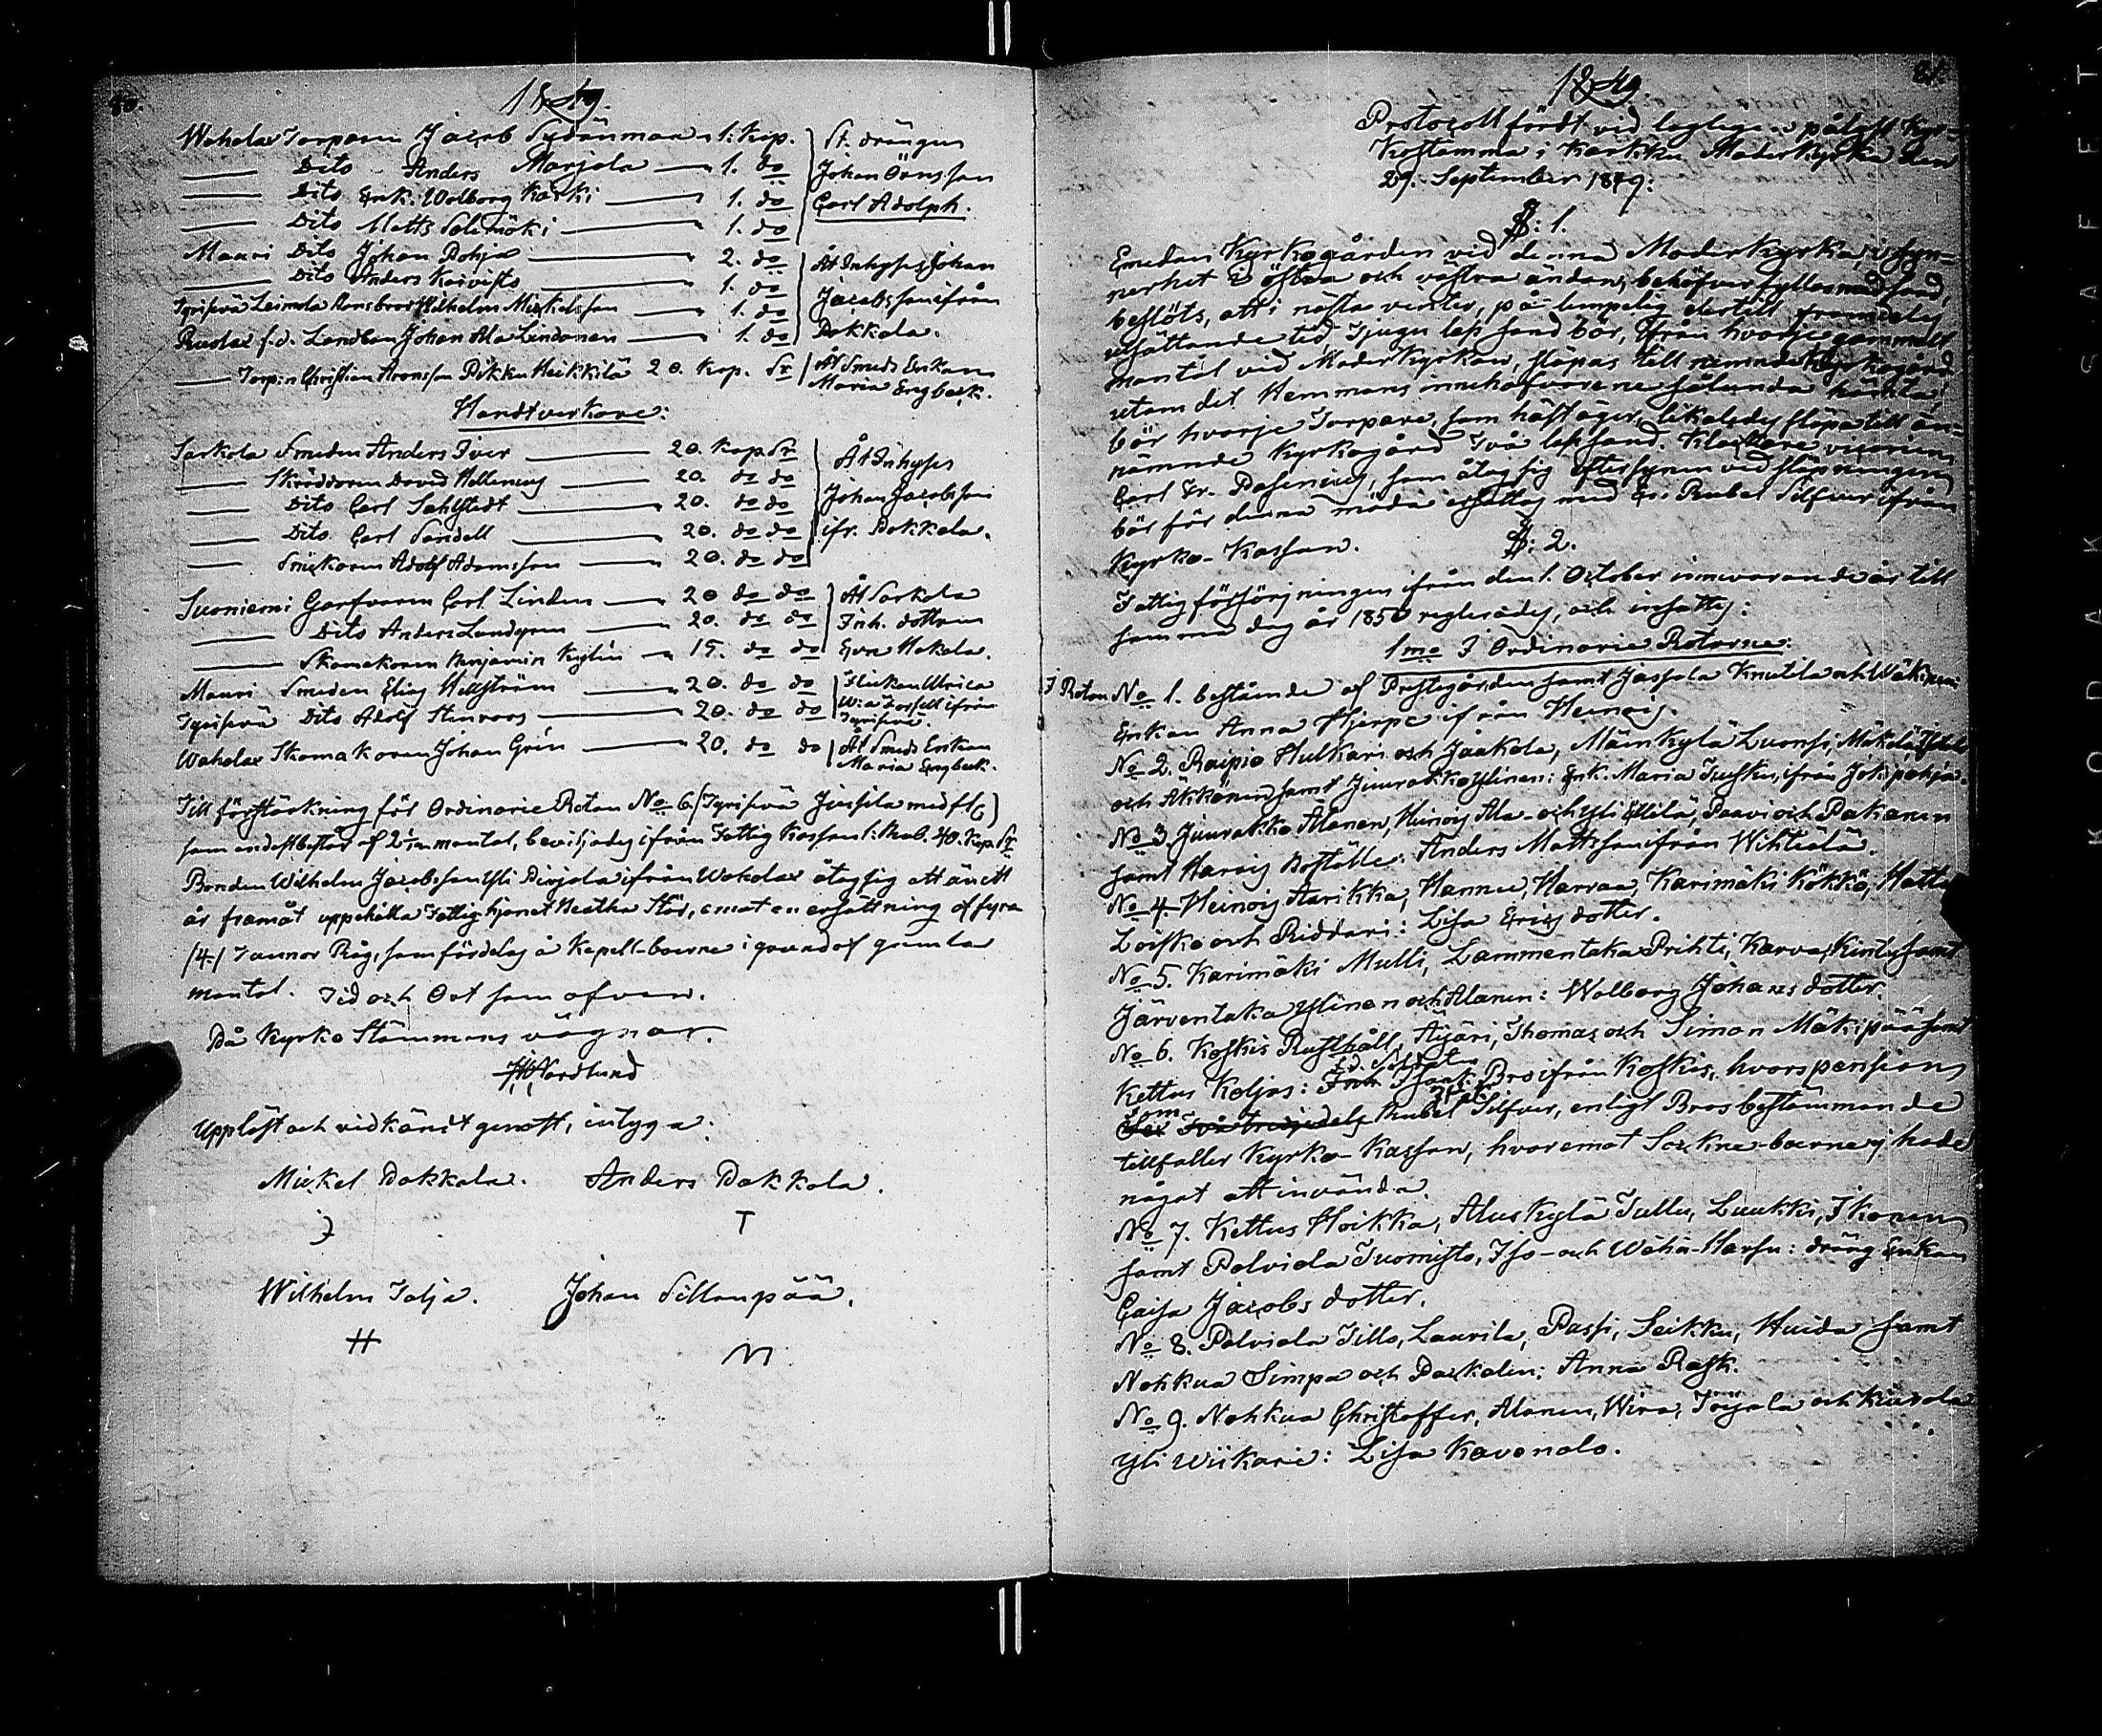 80.
1849.
Wahola Torparen Jacob Sydänmaa 1. kap.
Dito Anders Marjola 1. do
Dito Enk. Wolborg Kärki 1. do
Dito Matts Salimäki 1. do
St. drängen
Johan Örnsson
Carl Adolph.
Mauri Dito Johan Pohja 2. do
Dito Anders Koivisto 1. do
Tyrisevä Leimola Wilhelm Mickelsson 1. do
f.d. Landbon Johan Ala Lindanen 1. do
Åt Inhyses Johan
Jacobsson ifrån
Pakkala.
Torp:n Christian Aronsson Pikku Heikkilä 20. kop. Sr
Åt Smeds Enkan
Maria Engbäck.
Handtverkare:
Sarkola Smeden Anders Iver 20. kop Sr
Skräddaren David Hellenius 20. do do
Dito Carl Sahlstedt 20. do do
Dito Carl Sandell 20. do do
Snickaren Adolf Adamsson 20. do do
Åt Inhyses
Johan Jacobsson
ifr. Pakkala.
Suoniemi Garfvaren Carl Linden 20 do do
Dito Anders Lundgren 20. do do
Skomakaren Benjamin Kylén 15. do do
Åt Sarkola
Inh. dottren
Eva Makela.
Mauri Smeden Elias Hellström 20. do do
Tyrisevä Dito Adolf Stenroos 20. do do
Flickan Ulrica
ifrån
Tyrisevä.
Wahola Skomakaren Johan Grén 20. do do
Åt Smeds Enkan
Maria Engbäck.
Till förstärkning för Ordinarie Rotan No 6 (Tyrisevä Jussila med fl.)
som endast består af 2 mantal, beviljades ifrån Fattig Kassan 1. Rub. 40. Kop. Sr
Bonden Wilhelm Jacobsson Yli Pirjola ifrån Wahola åtog sig att än ett
år framåt uppehålla Fattig hjonet Beatha Stör, emot en ersättning af fyra
/4/ Tunnor Råg, som fördelas å Kapell-boerne i grund af gamla
mantal. Tid och Ort som ofvan.
På Kyrko Stämmans vägnar.
Nordlund
Uppläst och vidkändt genast, intyga:
Mickel Pakkala. Anders Pakkala.
T
Wilhelm Talja. Johan Sillanpää.
H M
81.
1849
Protocoll fördt vid lagligen pålyst Kyr-
kostämma i Karkku Moderkyrka den
29. September 1849:
§: 1.
Emedan Kyrkogården vid denna Moderkyrka, i syn-
nerhet i östra och vestra ändan, behöfver fyllas med sand,
beslöts, att i nästa venter, på lempelig dertill framdeles
utsättande tid, Tjugu lass sand bör, ifrån hvarje gammalt
mantal vid Moderkyrkan, släpas till nämnde Kyrkogård
utom det Hemmans innehafvarene sålunda
bör hvarje Torpare, som häst äger, likaledes släpa till än-
nämnde Kyrkogård Två lass sand. Klockare vicarien
Carl Fr. Dasenius, som åtog sig eftersynen vid släpningen
bör för denna möda ersättas med En Rubel Silfver ifrån
Kyrko-Kassan.
§: 2.
Fattigförsörjningen ifrån den 1. October innevarande år till
samma dag år 1850 reglerades, och insattes:
1mo I Ordinarie Rotarne:
I Rotan No 1. bestående af Prestegården samt Jassala Knutila och Wäkiparri
Enkan Anna Hjerpe ifrån Heinois.
No 2. Raipio Hulkari och Jaakola, Mäinkylä Luonsi, Mäkelä,
och Äkkönen samt Juurakko Ylinen: Enk. Maria ifrån Jokipohja.
No 3. Juurakko Alanen, Heinois Ala- och Yli Eerilä, Paavi och Pakanen
samt Harois Boställe: Anders Mattsson ifrån Wihtiälä.
No 4. Heinois Aarikka, Hannu, Harraa, Karimäki Kökkö, Hatta
och Riddari: Lisa Ericsdotter.
No 5. Karimäki Mulli, Lammentaka Prihti, Karva, samt
Järventaka Ylinen och Alanen: Wolborg Johansdotter.
No 6. Koskis Rusthåll, Äijäri, Thomas och Simon Mäkipää samt
Kettus Koljas: Isaak Bro ifrån Koskis, hvars pension
Rubel Silfver, enligt Bros bestämmande
tillfaller Kyrko-Kassan, hvaremot Sockne-boerne ej hade
något att invända.
No 7. Kettus Hoikka, Aluskylä Tullu, Luukki, Ikonen
samt Palviala Tuomisto, Iso- och Wähä-Harsu: dräng Enkan
Caisa Jacobsdotter.
No 8. Palviala Tillo, Laurila, Passi, Seikku, Huida samt
Nohkua Simpa och Packalen: Anna Rask.
No 9. Nohkua Christoffer, Alanen, Wira, och Kiurola
Yli Wiikari: Lisa Kavenalo.
KODAK SAFETY